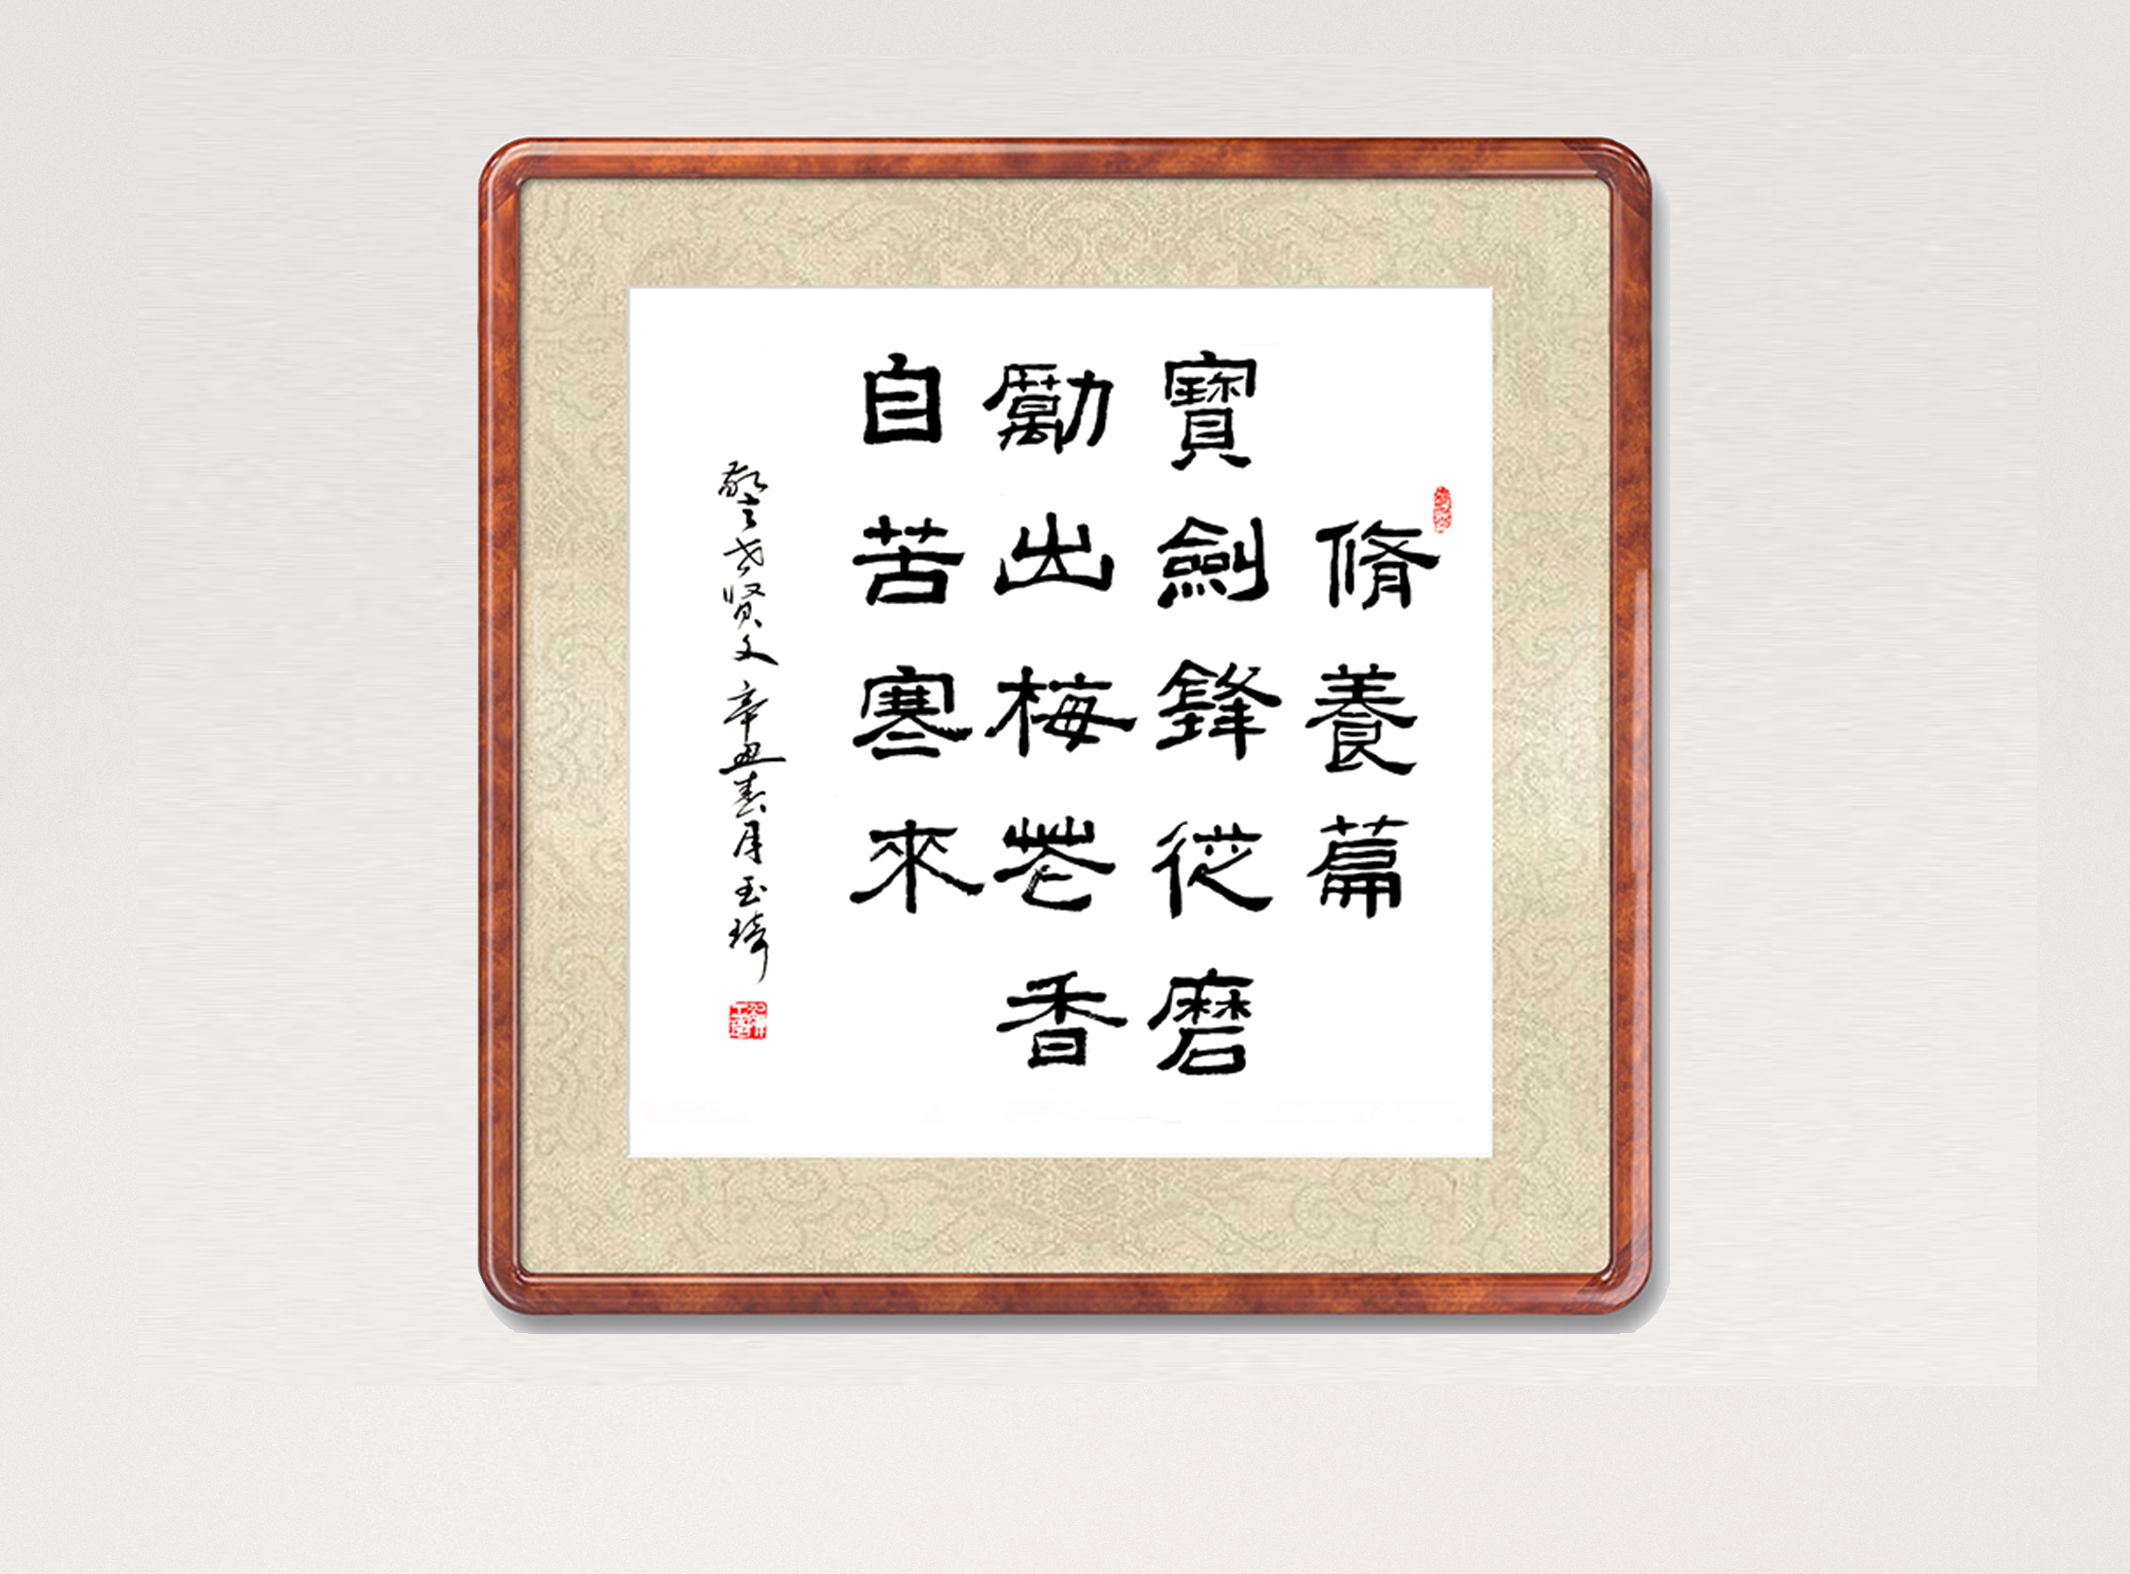 脩養篇
寶劍鋒從磨
勵出梅花香
自苦寒來
警世贤文 辛丑春月 玉琦